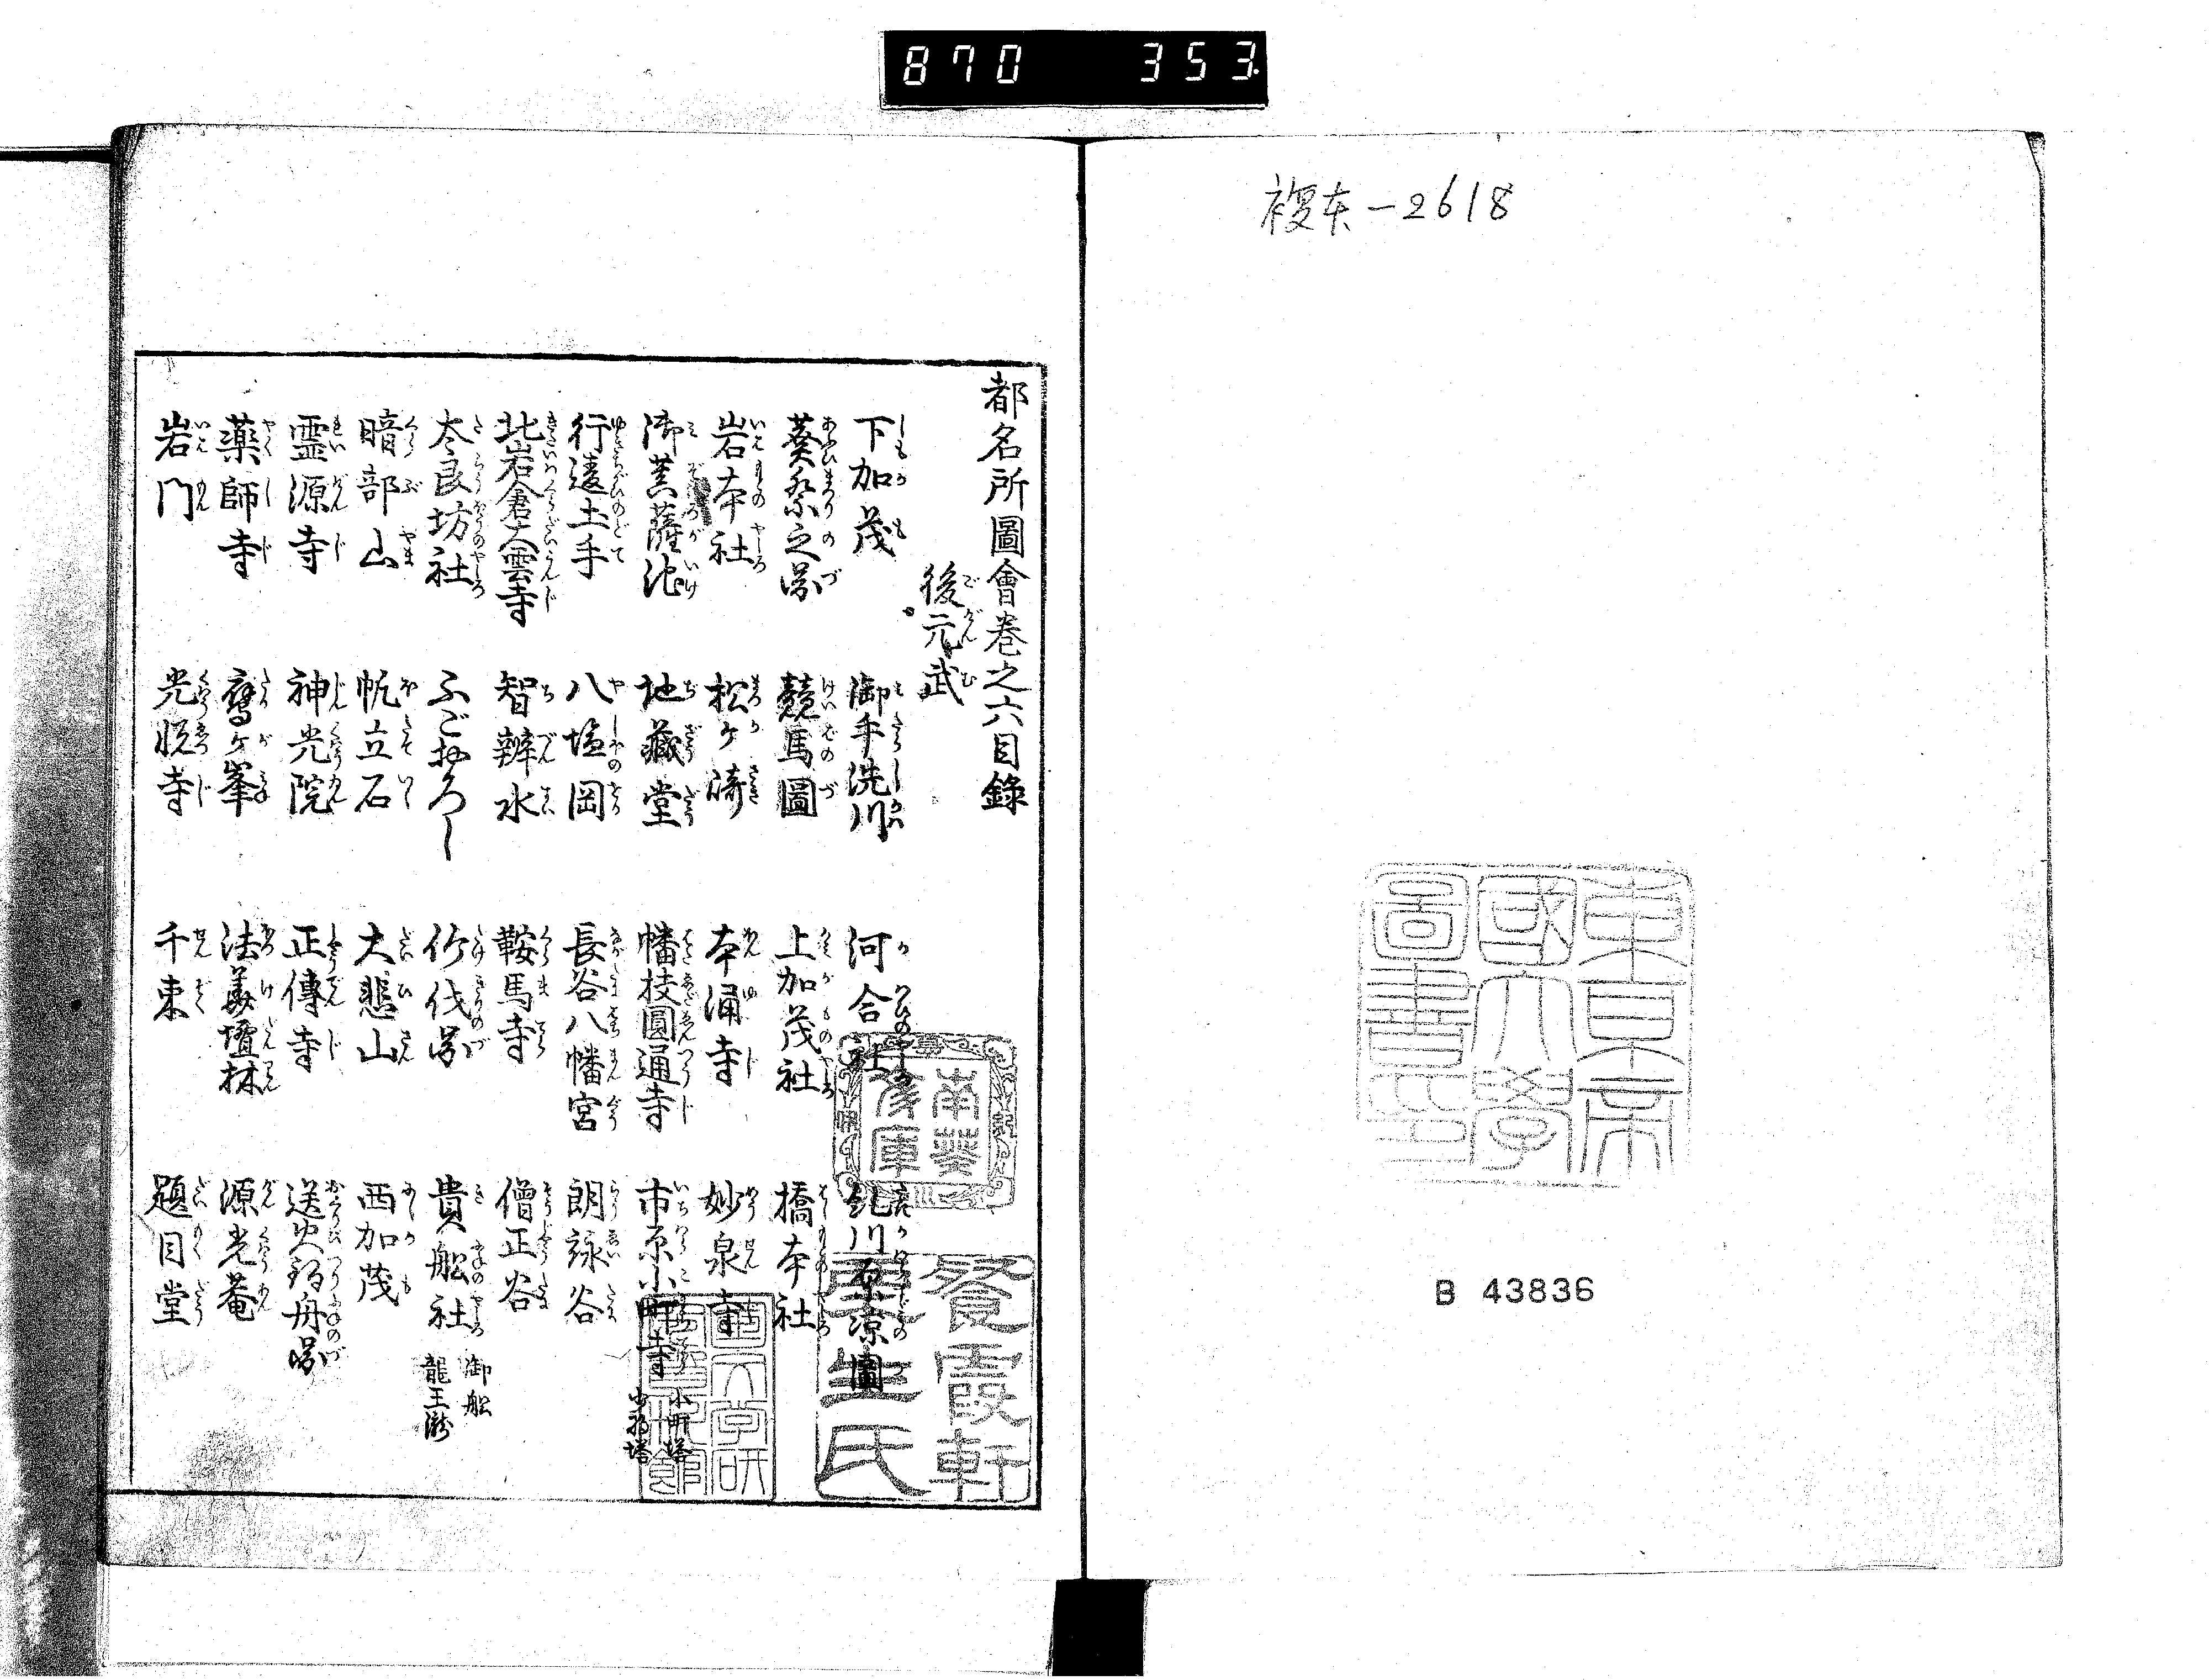 870 353
複本－2618
東京帝
國大學
圖書印
B 43836
都名所圖會巻之六目錄
後元武
下加茂 御手洗川 河合社 糺川原涼圖
葵祭之圖 競馬圖 上加茂社 橋本社
岩本社 松ヶ﨑 本涌寺 妙泉寺
御菩薩池 地藏堂 幡枝圓通寺 市原小町寺 小町塔 少将塔
行違土手 八塩岡 長谷八幡宮 朗詠谷
北岩倉大雲寺 智辨水 鞍馬寺 僧正谷
太良坊社 ふごおろし 竹伐圖 貴舩社 御舩 龍王瀧
暗部山 帆立石 大悲山 西加茂
霊源寺 神光院 正傳寺 送火船舟圖
薬師寺 鷹ヶ峯 法華壇林 源光菴
岩门 光悦寺 千束 題目堂
南葵
文庫
餐霞軒
生氏